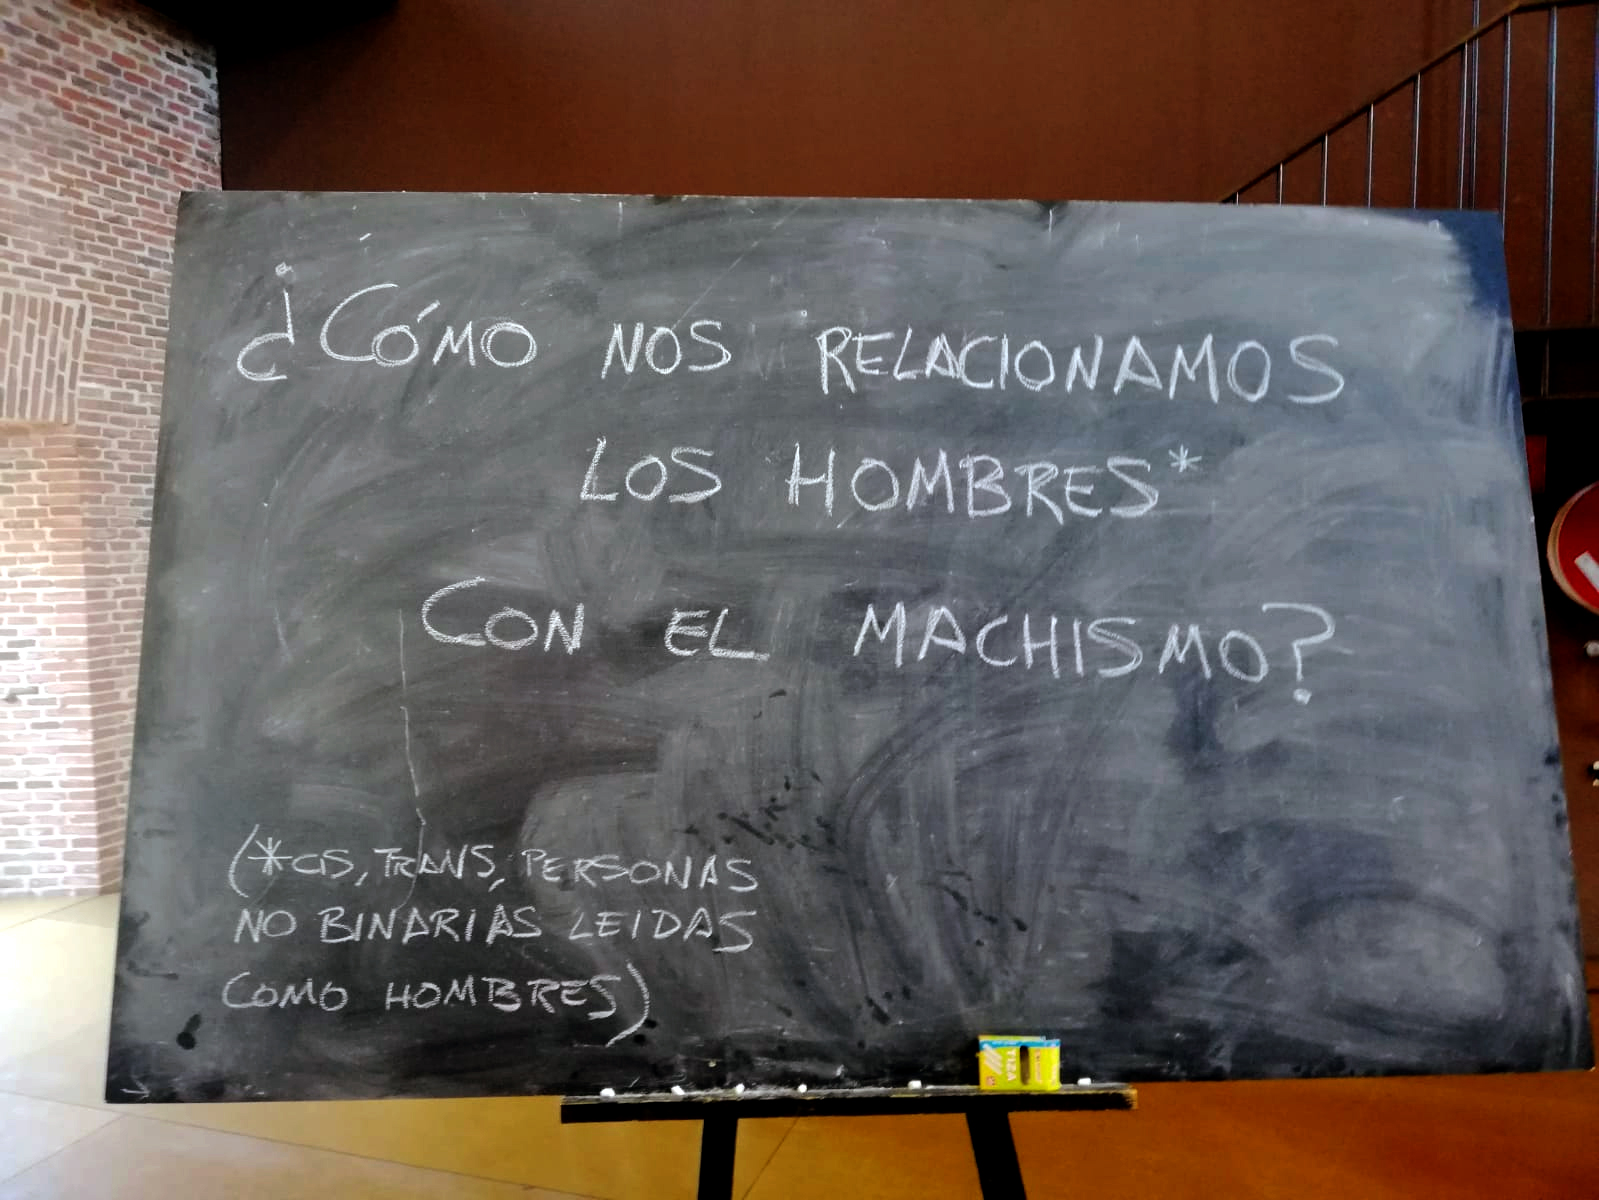 ¿CÓMO NOS RELACIONAMOS
LOS HOMBRES*
CON EL MACHISMO?
(*CIS, TRANS, PERSONAS
NO BINARIAS LEIDAS
COMO HOMBRES)
TIZA